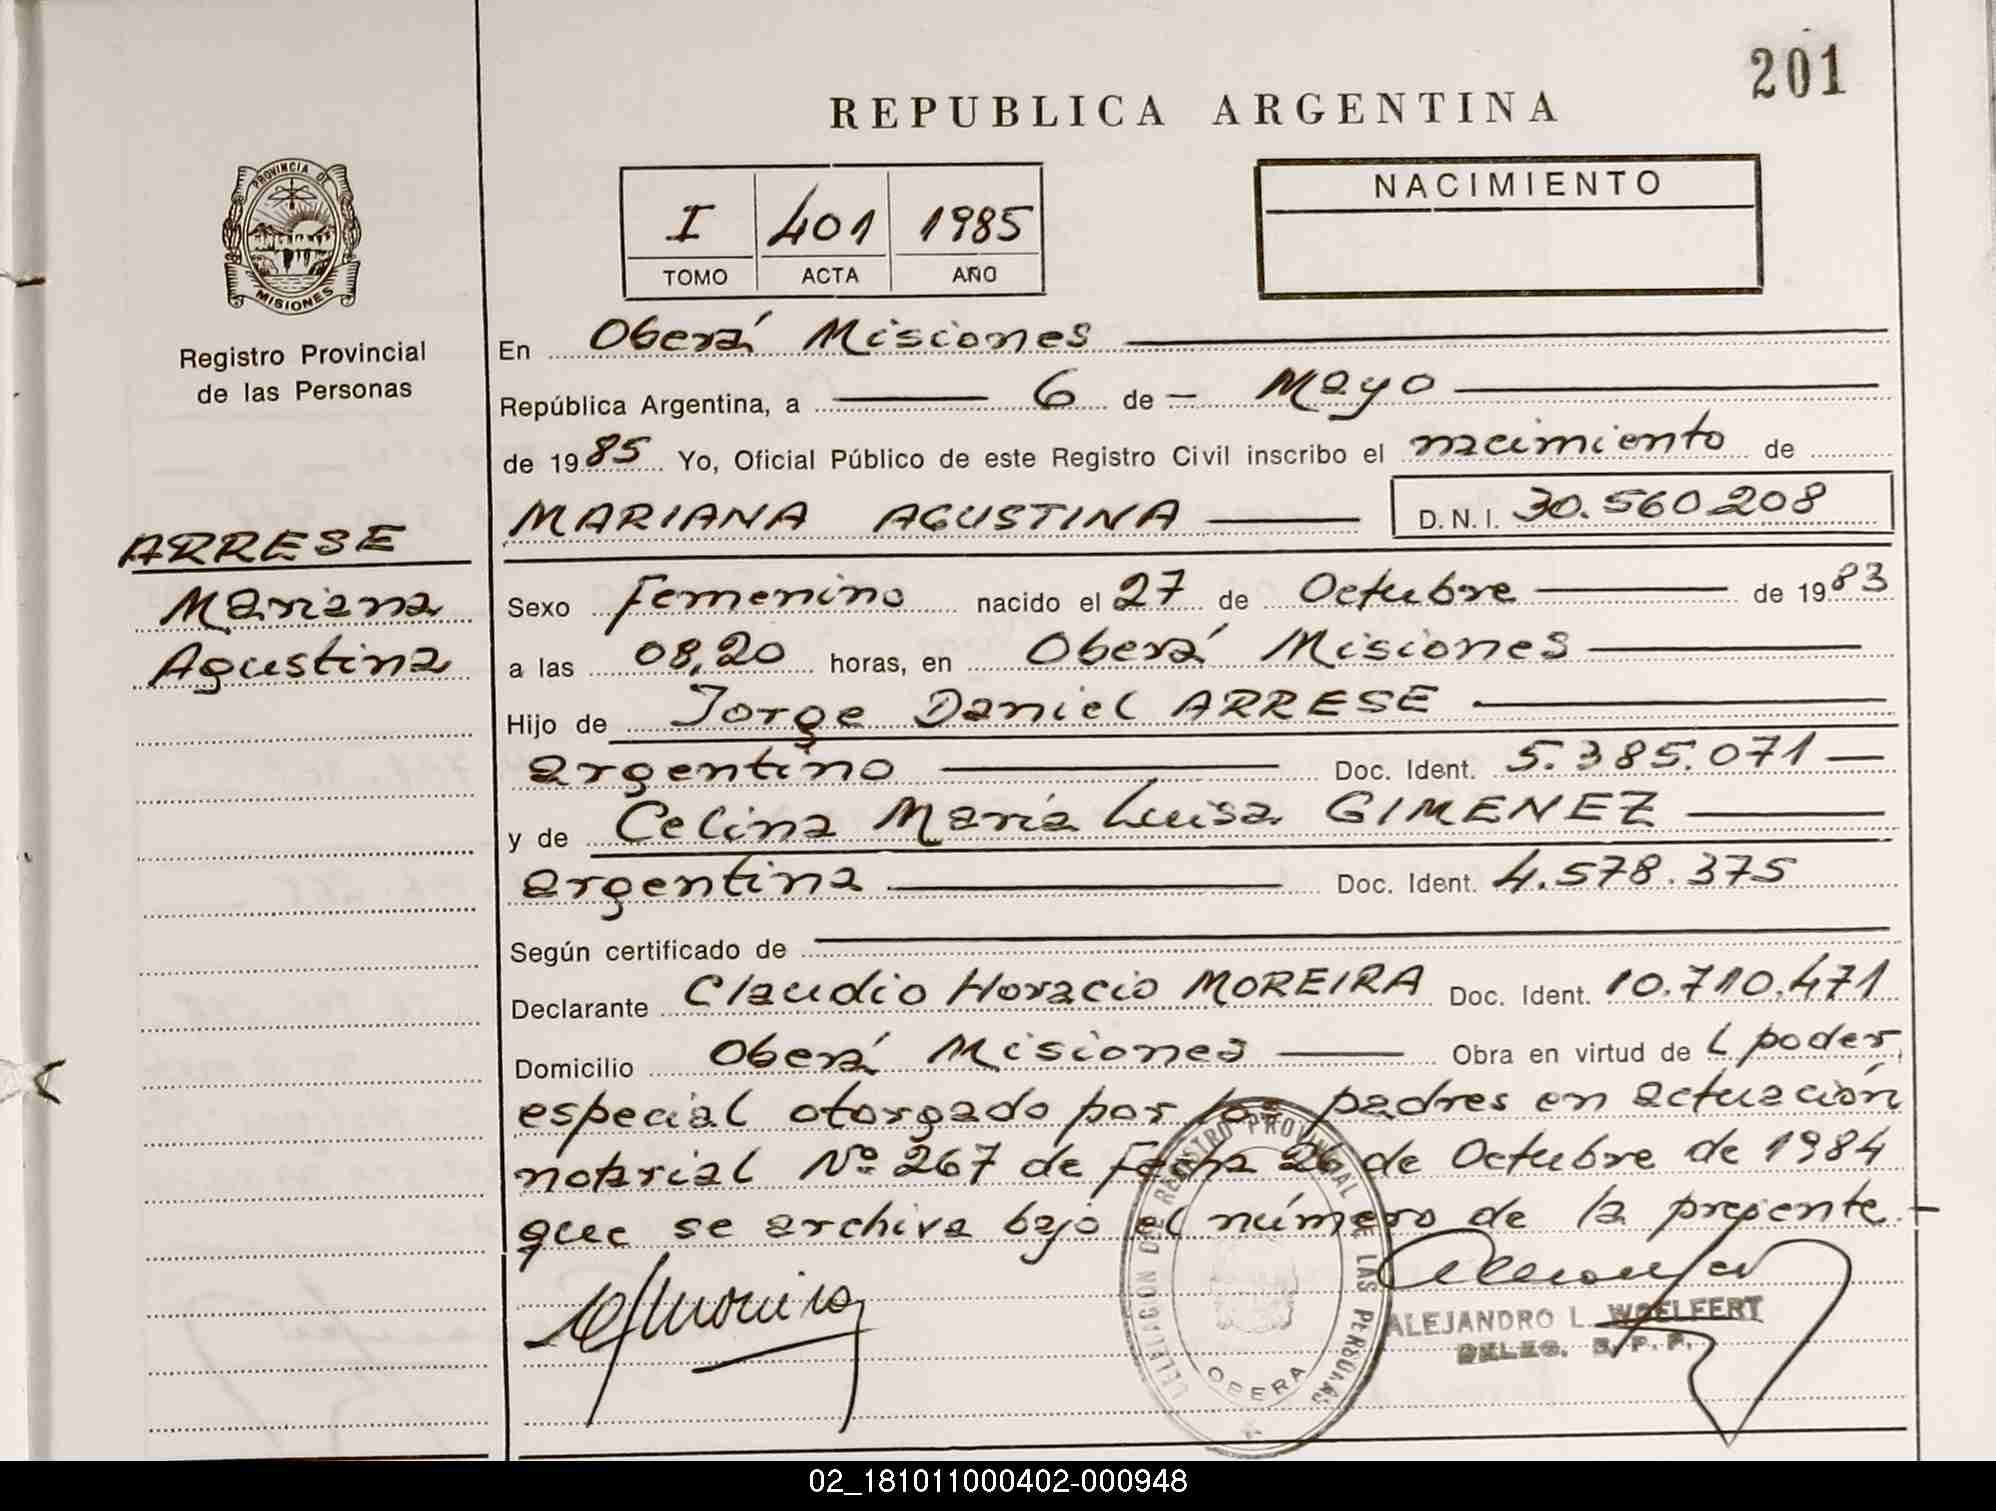 201
REPUBLICA ARGENTINA
PROVINCIA DE
MISIONES
Registro Provincial
de las Personas
I 401 1985
TOMO ACTA AÑO
NACIMIENTO
En Oberá Misiones
República Argentina, a 6 de Mayo
de 1985 Yo, Oficial Público de este Registro Civil inscribo el nacimiento de
MARIANA AGUSTINA D.N.I. 30.560.208
ARRESE
Mariana
Agustina
Sexo Femenino nacido el 27 de Octubre de 1983
a las 08,20 horas, en Oberá Misiones
Hijo de Jorge Daniel ARRESE
argentino Doc. Ident. 5.385.071
y de Celina María Luisa GIMENEZ
argentina Doc. Ident. 4.578.375
Según certificado de
Declarante Claudio Horacio MOREIRA Doc. Ident. 10.710.471
Domicilio Oberá Misiones Obra en virtud de l poder
especial otorgado por los padres en actuación
notarial Nº 267 de Fecha 26 de Octubre de 1984
que se archiva bajo el número de la presente.
DELEGACION DE REGISTRO PROVINCIAL DE LAS PERSONAS
OBERA
ALEJANDRO L. WOELFERT
DELEG. R. P. P.
02_181011000402-000948